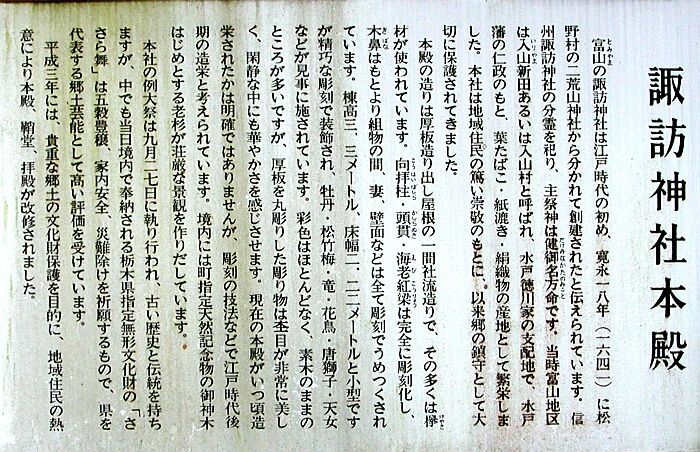 諏訪神社本殿
富山の諏訪神社は江戸時代の初め、寛永一八年（一六四一）に松
野村の二荒山神社から分かれて創建されたと伝えられています。信
州諏訪神社の分霊を祀り、主祭神は健御名方命です。当時富山地区
は入山新田あるいは入山村と呼ばれ、水戸徳川家の支配地で、水戸
藩の仁政のもと、葉たばこ・紙漉き・絹織物の産地として繁栄しま
した。本社は地域住民の篤い崇敬のもとに、以来郷の鎮守として大
切に保護されてきました。
本殿の造りは厚板造り出し屋根の一間社流造りで、その多くは欅
材が使われています。向拝柱・頭貫・海老紅梁は完全に彫刻化し、
木鼻はもとより組物の間、妻、壁面などは全て彫刻でうめつくされ
ています。棟高三．三メートル、床幅二．二二メートルと小型です
が精巧な彫刻で装飾され、牡丹・松竹梅・竜・花鳥・唐獅子・天女
などが見事に施されています。彩色はほとんどなく、素木のままの
ところが多いですが、厚板を丸彫りした彫り物は杢目が非常に美し
く、閑静な中にも華やかさを感じさせます。現在の本殿がいつ頃造
栄されたかは明確ではありませんが、彫刻の技法などで江戸時代後
期の造栄と考えられています。境内には町指定天然記念物の御神木
はじめとする老杉が荘厳な景観を作りだしています。
本社の例大祭は九月二七日に執り行われ、古い歴史と伝統を持ち
ますが、中でも当日境内で奉納される栃木県指定無形文化財の「さ
さら舞」は五穀豊穣、家内安全、災難除けを祈願するもので、県を
代表する郷土芸能として高い評価を受けています。
平成三年には、貴重な郷土の文化財保護を目的に、地域住民の熱
意により本殿、鞘堂、拝殿が改修されました。